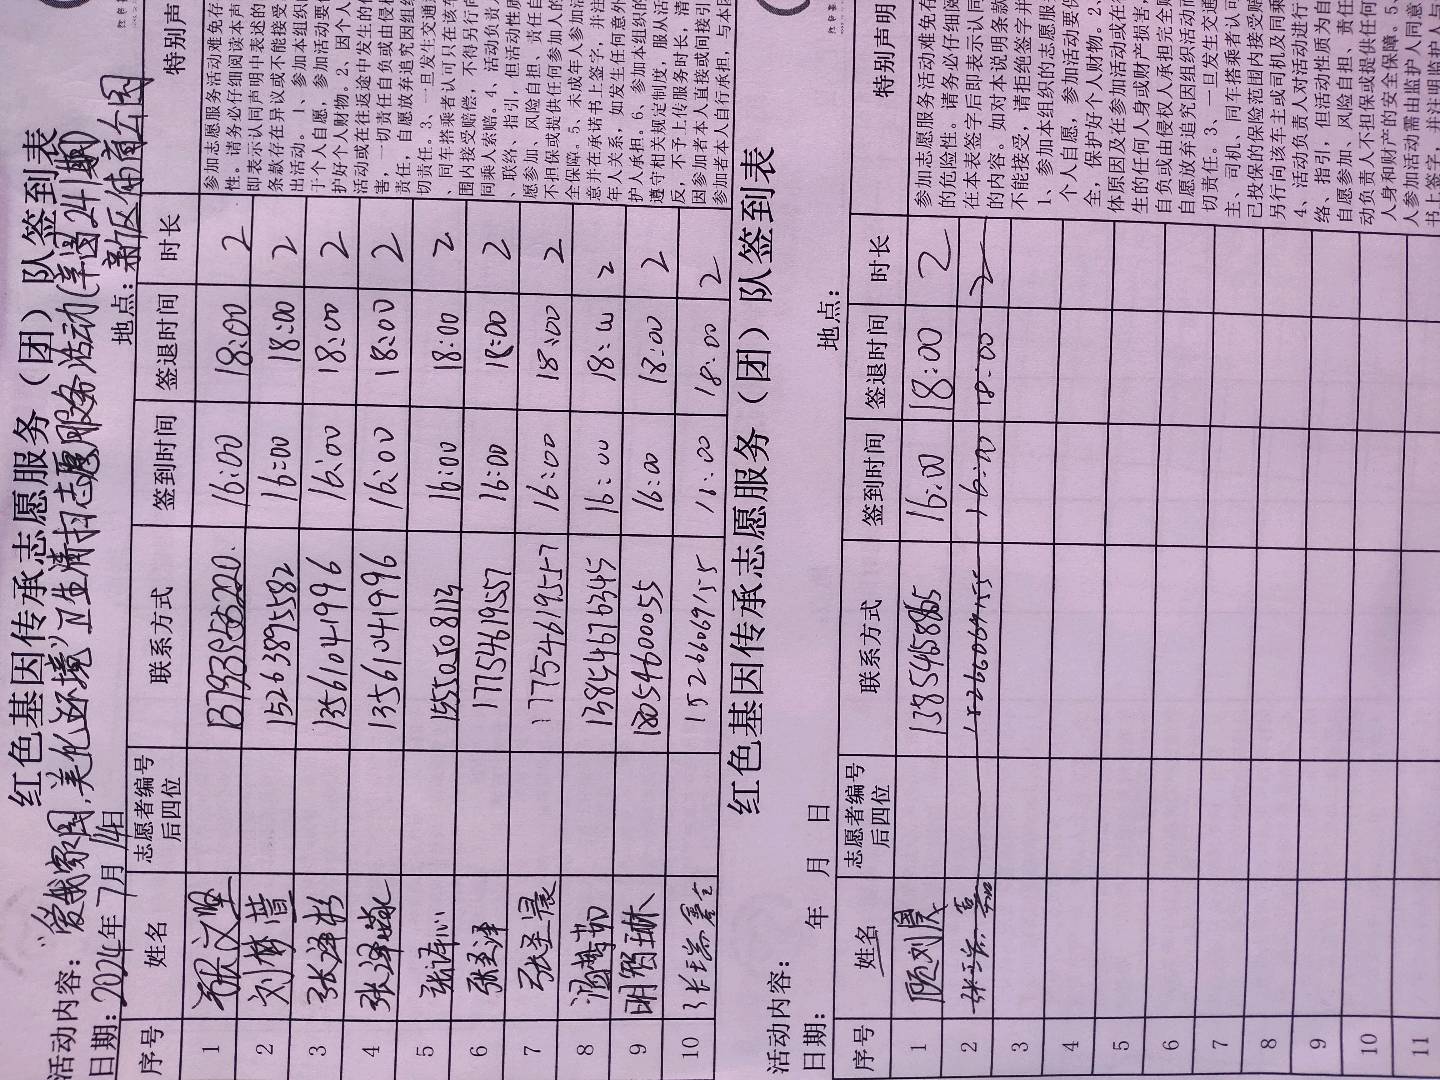 红色基因传承志愿服务（团）队签到表
活动内容：“爱我家园，美化环境”卫生清扫志愿服务活动(第241期)
日期：2024年7月14日 地点：新区蒲南公园
序号 姓名 志愿者编号后四位 联系方式 签到时间 签退时间 时长 特别声明
1 16:00 18:00 2
2 刘梦 15263895582 16:00 18:00 2
3 张泽彬 13561041996 16:00 18:00 2
4 张泽 13561041996 16:00 18:00 2
5 张沁 15505508113 16:00 18:00 2
6 张圣泽 17754619557 16:00 18:00 2
7 张圣晨 17754619557 16:00 18:00 2
8 13854676345 16:00 18:00 2
9 明 琳 18054600055 16:00 18:00 2
10 张瑞鑫 15266069155 16:00 18:00 2
参加志愿服务活动难免存
性。请务必仔细阅读本声
即表示认同声明中表达的
条款存在异议或不能接受
出活动。1、参加本组织
于个人自愿，参加活动要
护好个人财物。2、因个人
活动或在往返途中发生的
害，一切责任自负或由侵权
责任，自愿放弃追究因组织
切责任。3、一旦发生交通
、同车搭乘者认可只在该车
围内接受赔偿，不得另行向
同乘人索赔。4、活动负责人
、联络、指引，但活动性质
愿参加、风险自担、责任自
不担保或提供任何参加人的
全保障。5、未成年人参加活
意并在承诺书上签字，并注
年人关系，如发生任何意外
护人承担。6、参加本组织的
遵守相关规定制度，服从活
反，不予上传服务时长，清
因参加者本人直接或间接引
参加者本人自行承担，与本团
红色基因传承志愿服务（团）队签到表
活动内容：
日期： 年 月 日 地点：
序号 姓名 志愿者编号后四位 联系方式 签到时间 签退时间 时长 特别声明
1 顾刘晨 13854658865 16:00 18:00 2
2 15266069155 16:00 18:00 2
3
4
5
6
7
8
9
10
11
参加志愿服务活动难免存
的危险性。请务必仔细阅
在本表签字后即表示认同
的内容。如对本说明条款
不能接受，请拒绝签字并
1、参加本组织的志愿服
个人自愿，参加活动要保
全，保护好个人财物。2、
体原因及在参加活动或在往
生的任何人身或财产损害，
自负或由侵权人承担完全赔
自愿放弃追究因组织活动而
切责任。3、一旦发生交通
主、司机、同车搭乘者认可
已投保的保险范围内接受赔
另行向该车主或司机及同乘
4、活动负责人对活动进行
络、指引，但活动性质为自
自愿参加、风险自担、责任
动负责人不担保或提供任何
人身和财产的安全保障。5、
人参加活动需由监护人同意
书上签字，并注明监护人与